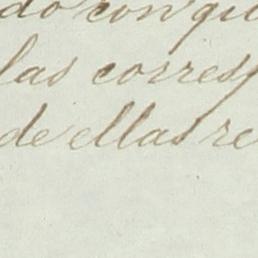 do con qu
las corresp
de ellas re